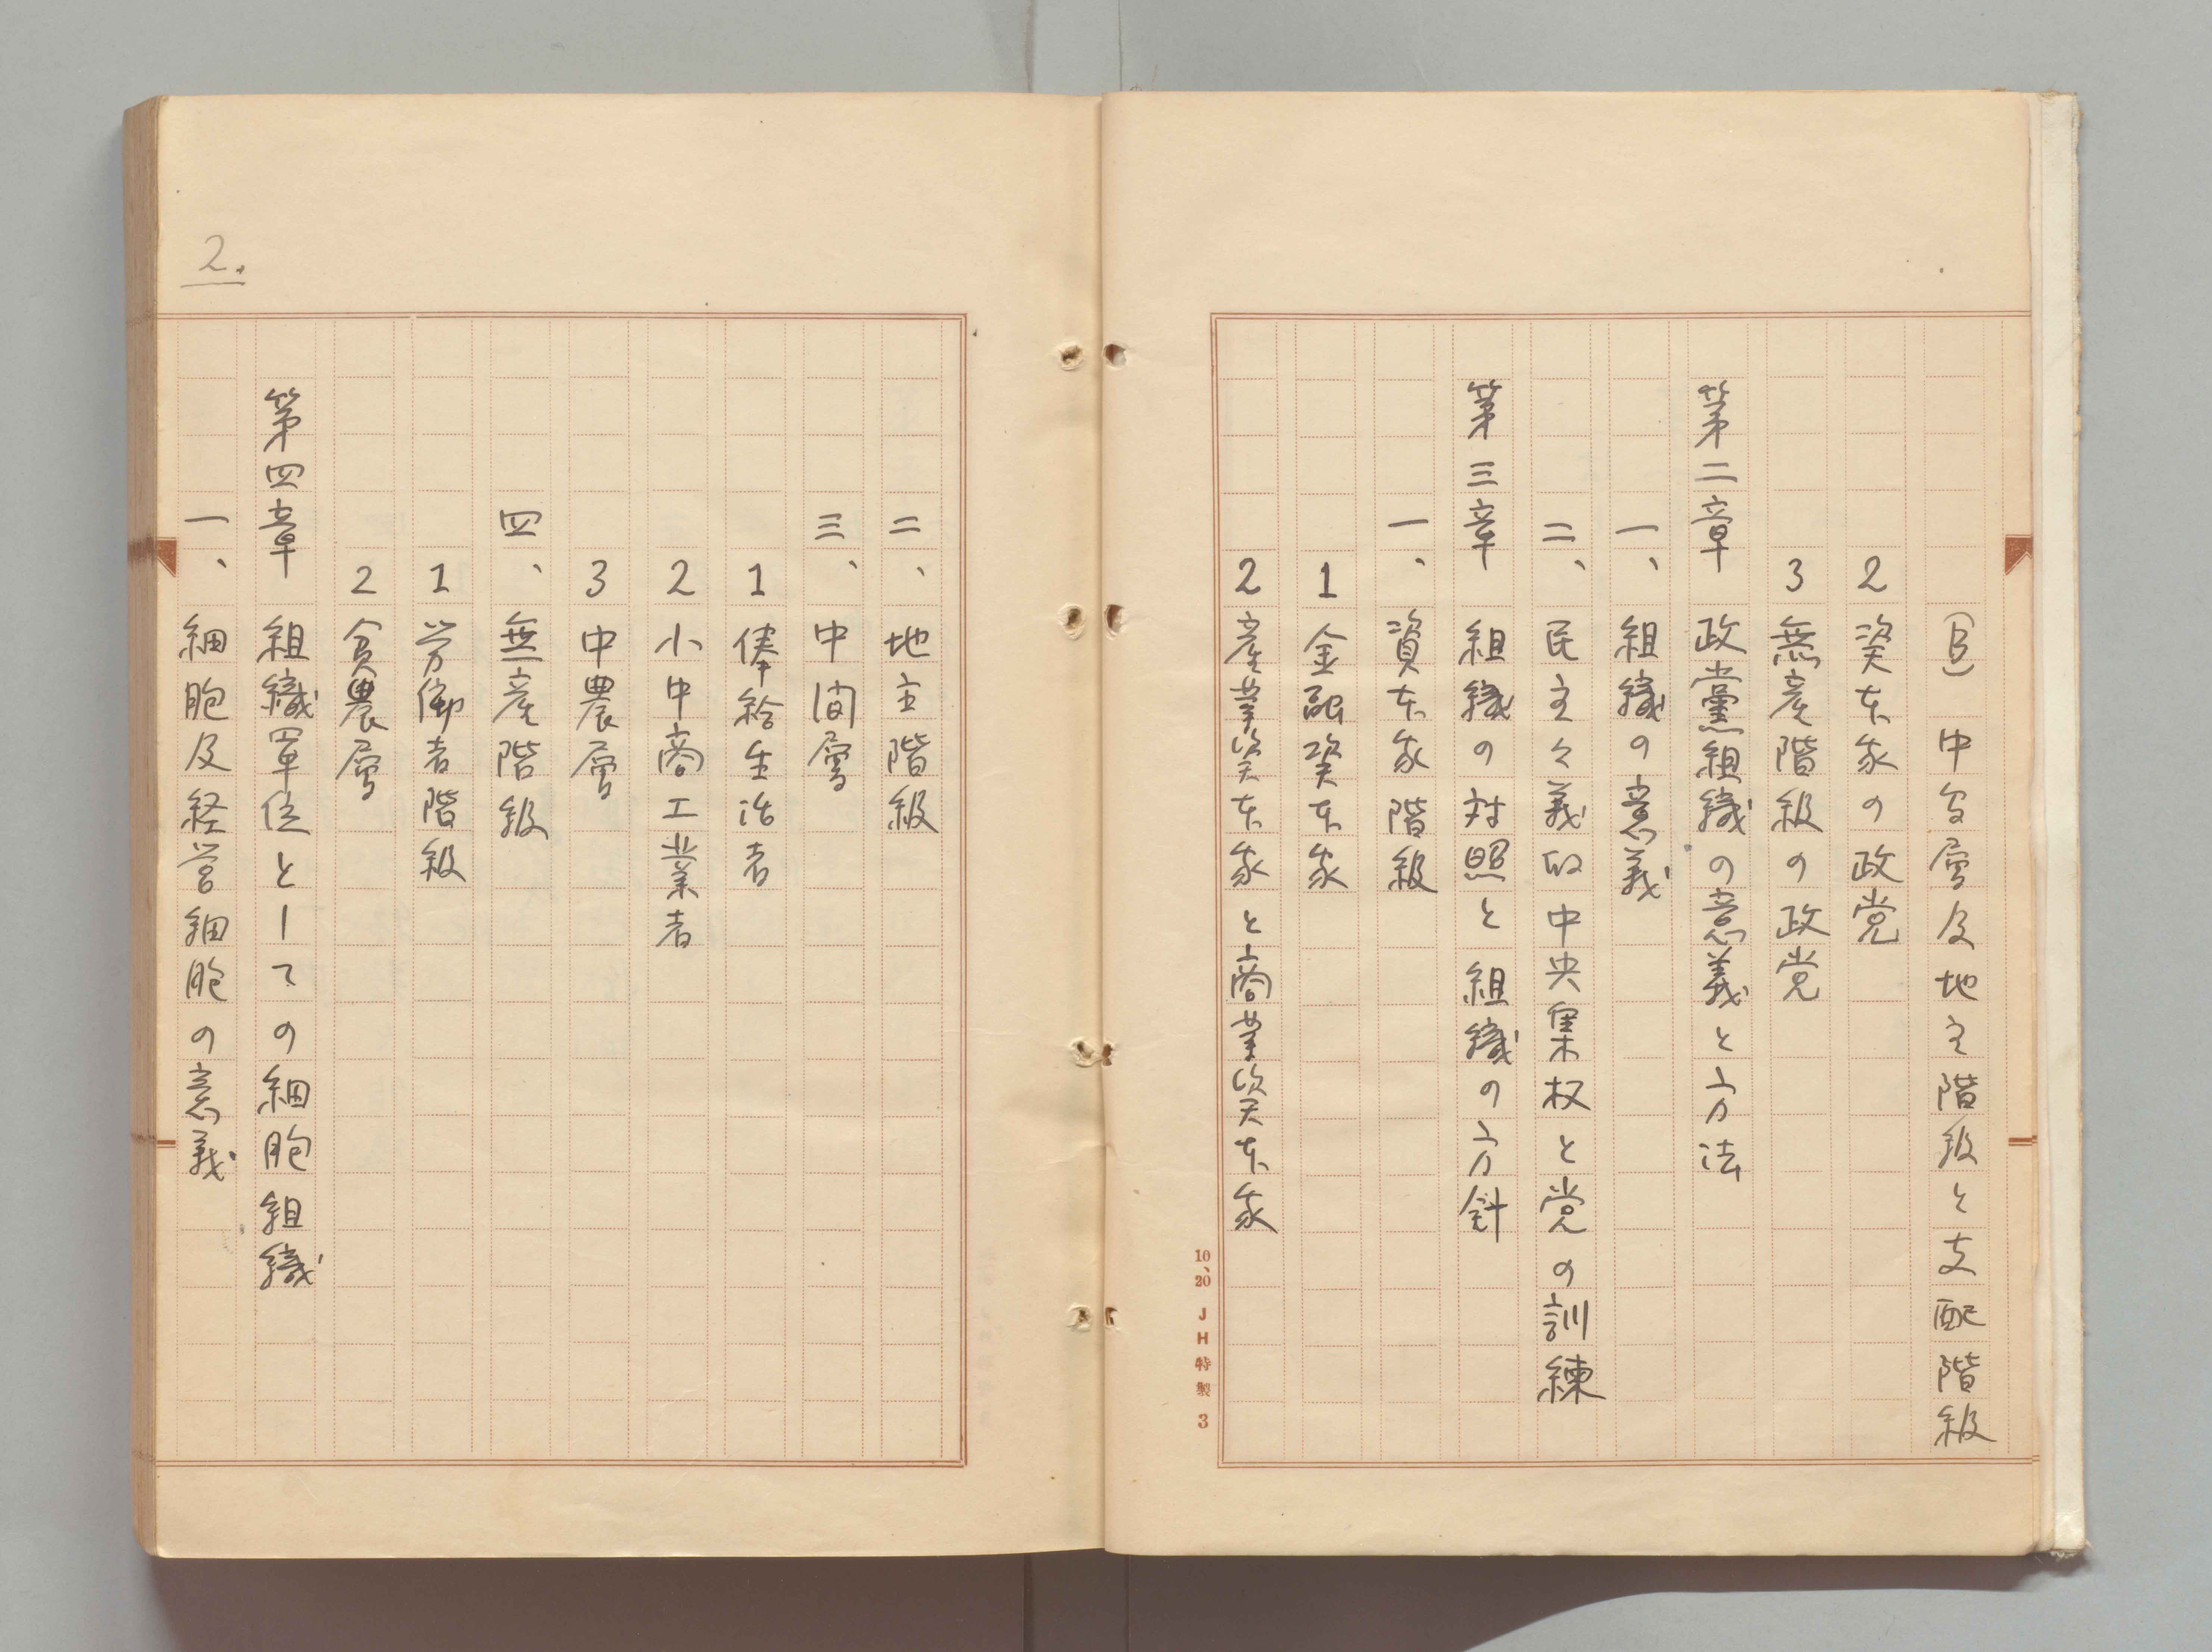 (B) 中间層及地主階級と支配階級
2 資本家の政党
3 無産階級の政党
第二章 政黨組織の意義と方法
一、組織の意義
二、民主々義的中央集权と党の訓練
第三章 組織の対照と組織の方針
一、資本家階級
1 金融資本家
2 産業資本家と商業資本家
10、20 JH特製 3
2.
二、地主階級
三、中间層
1 俸給生活者
2 小中商工業者
3 中農層
四、無産階級
1 労働者階級
2 貧農層
第四章 組織単位としての細胞組織
一、細胞及経営細胞の意義